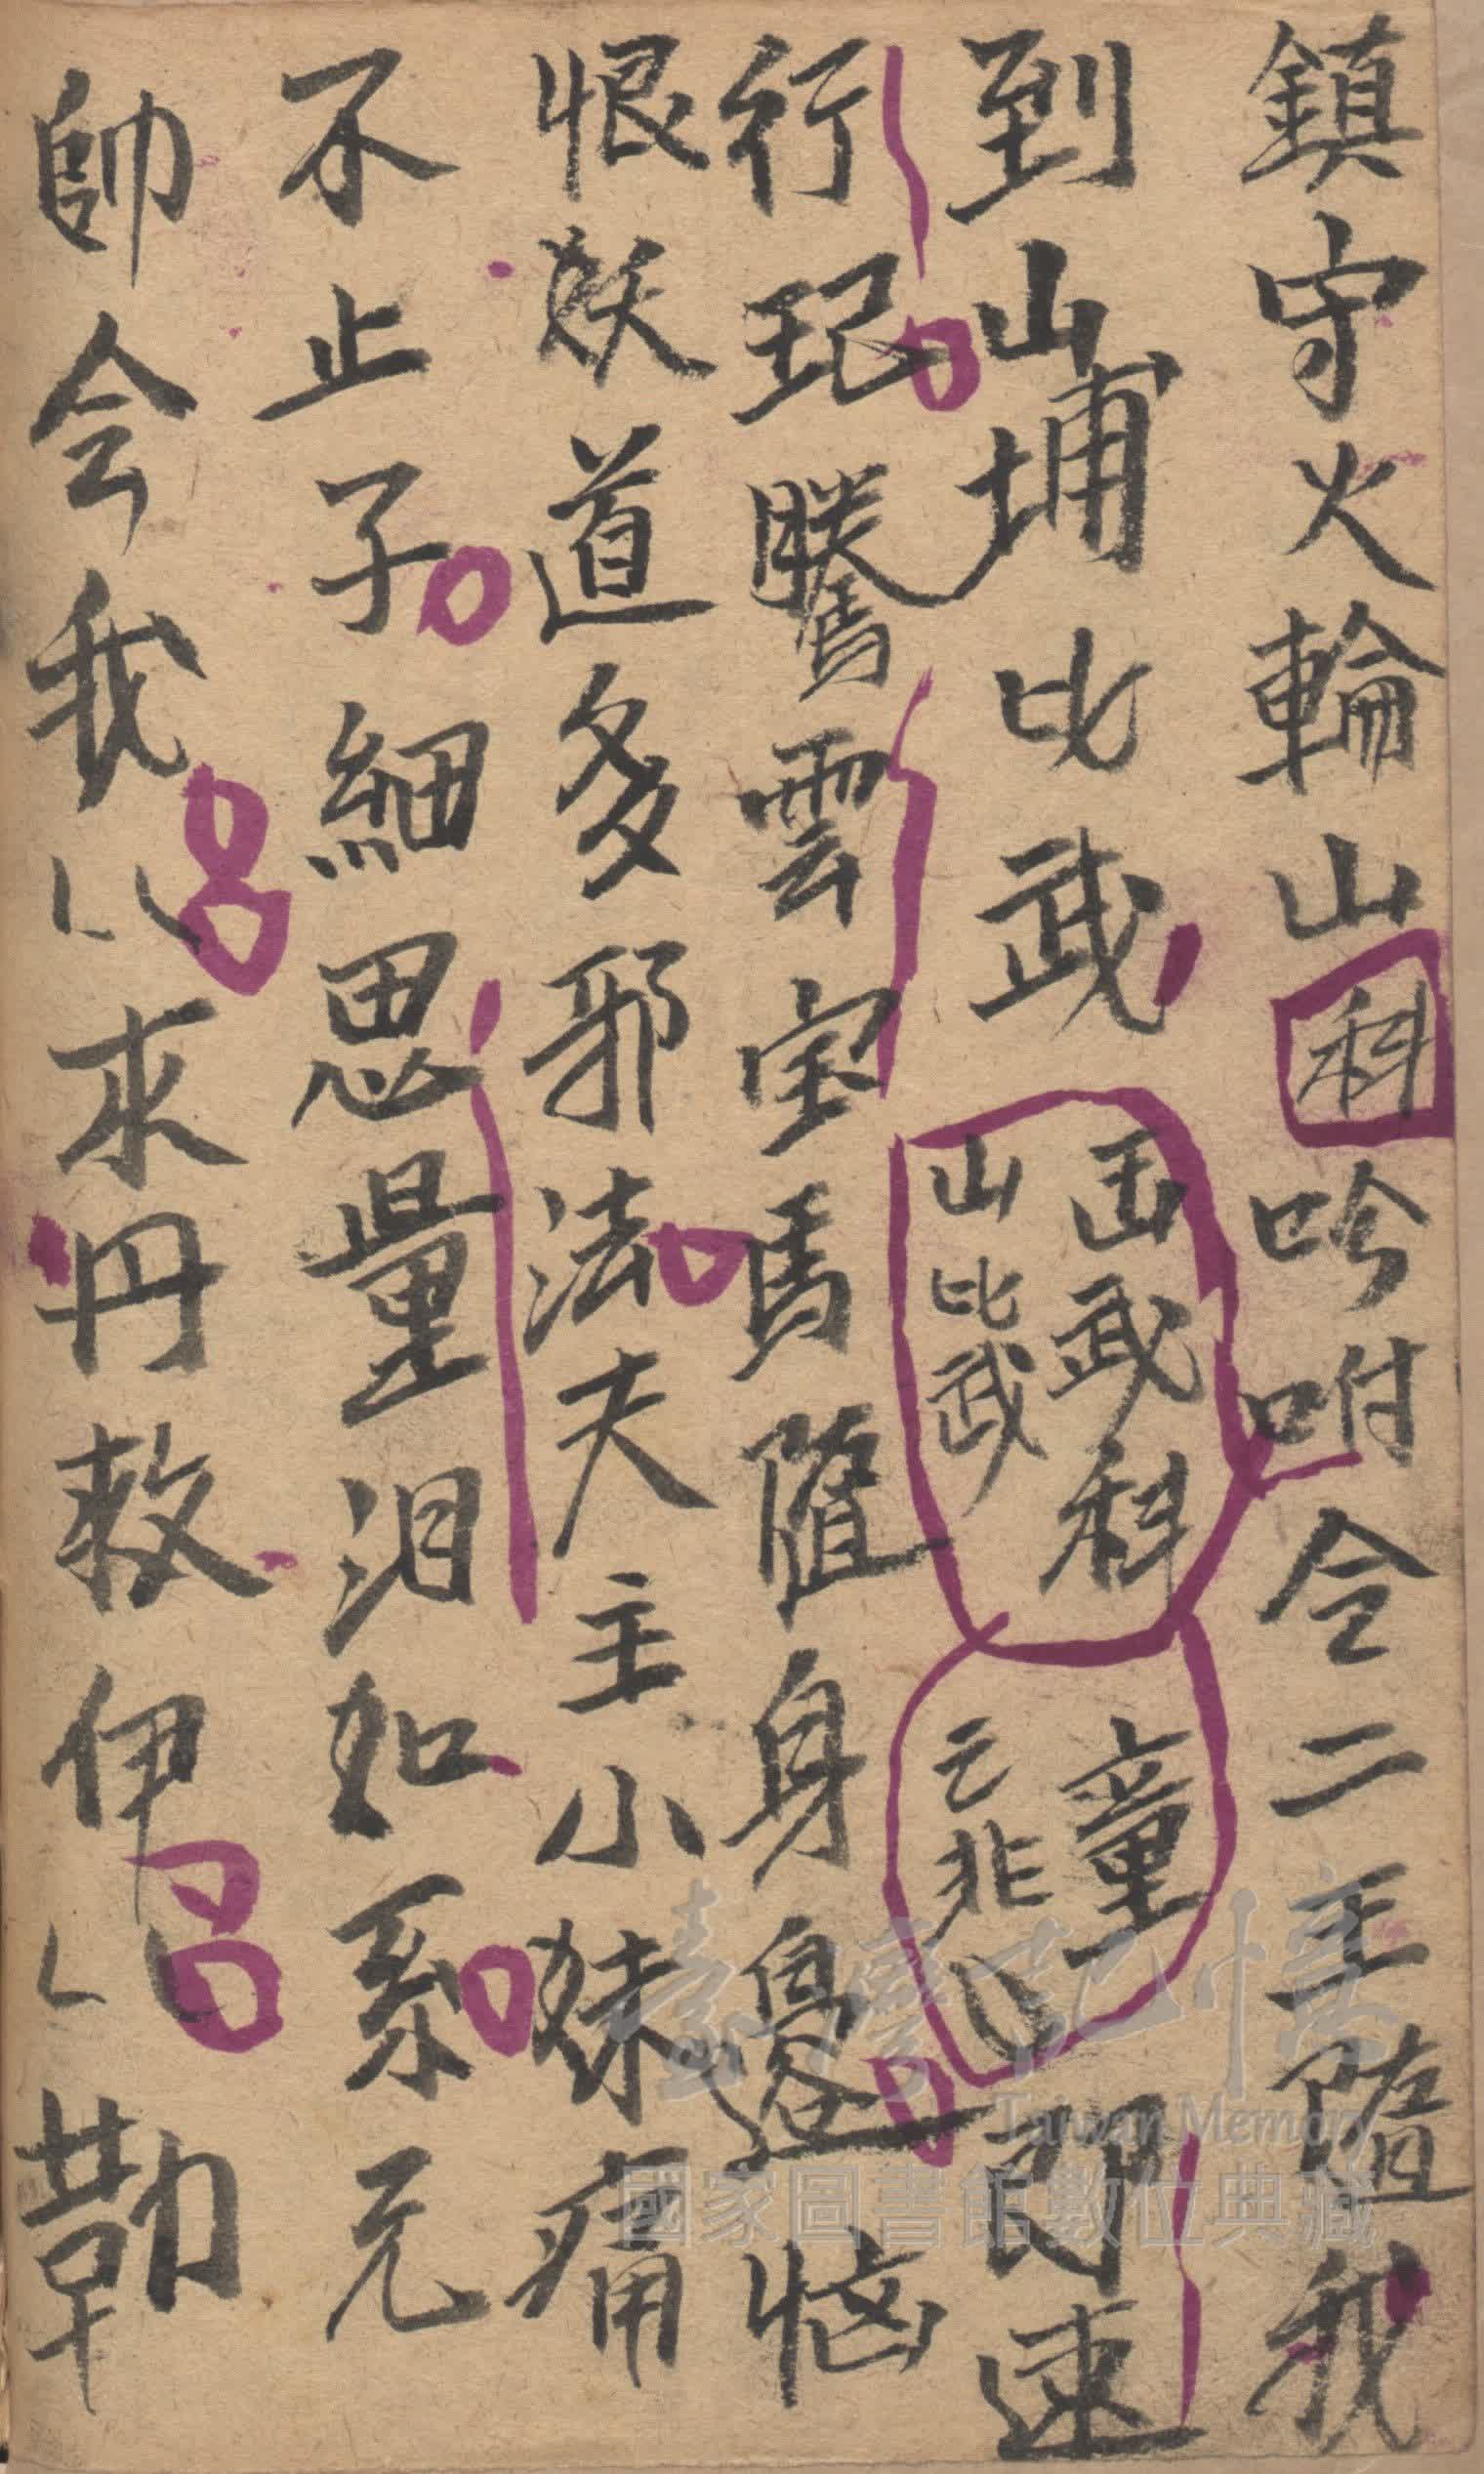 鎮守火輪山科吟咐令二王隨我
到山埔比武
武科
山比武
童
即速
行 騰雲宝馬隨身邊惱
恨妖道多邪法夫主小妹痛
不止子細思量泪如系元
帥会我〻來丹救伊〻勒
臺灣記憶
Taiwan Memory
國家圖書館數位典藏